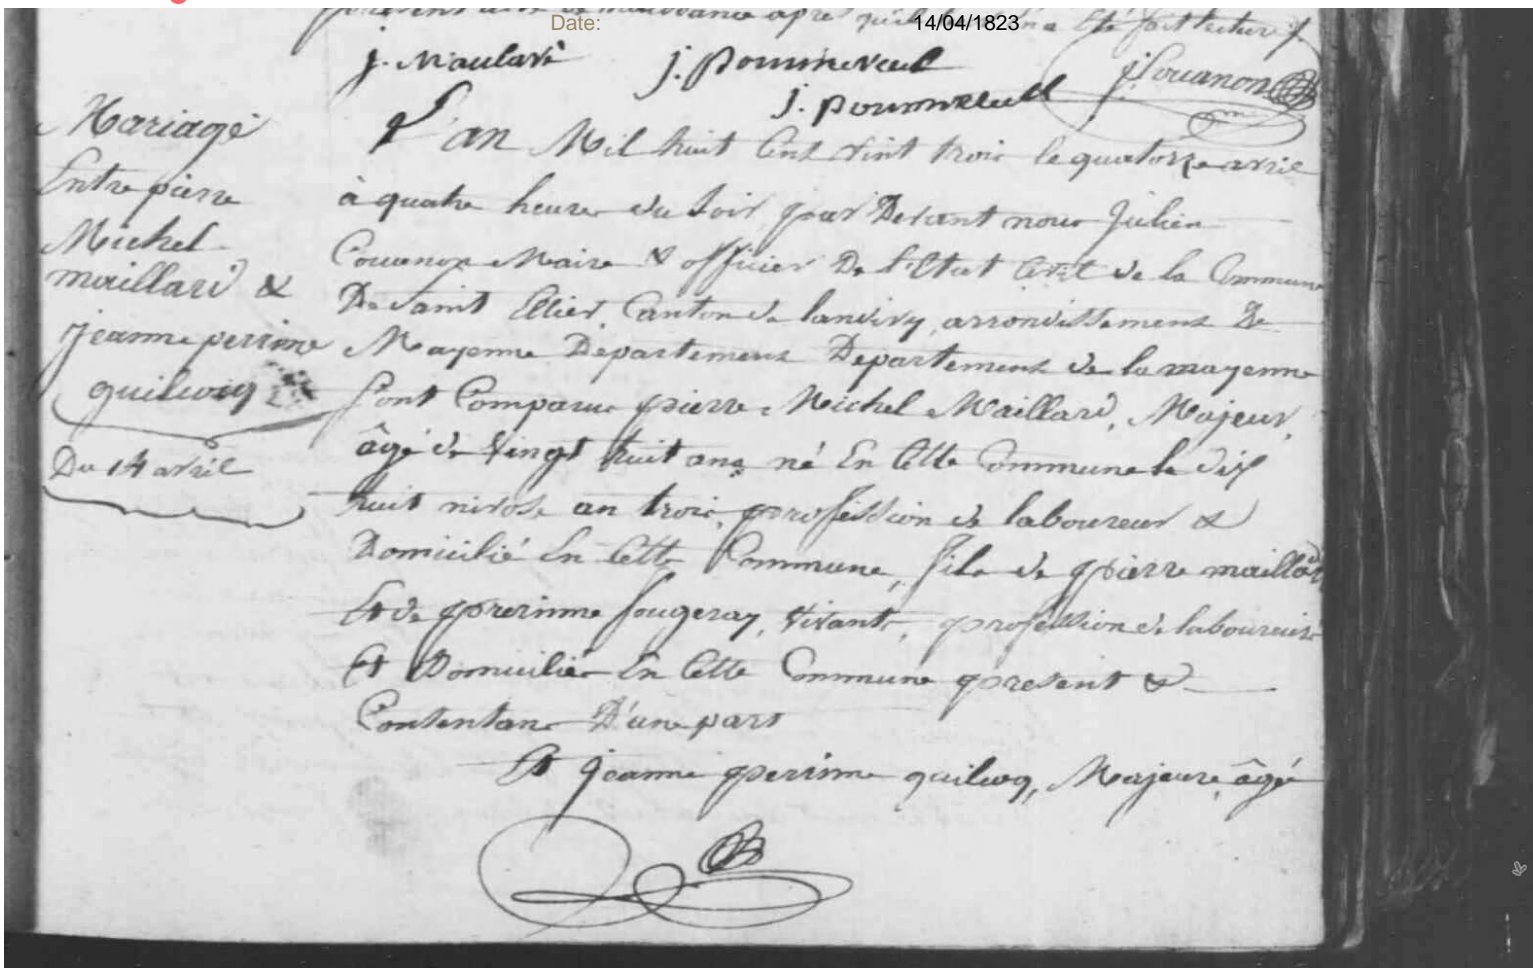 present acte de naissance après qu'il été fait lecture
Date: 14/04/1823
j. Maulavé j. Pommereul
j. pommereull j. Couanon
Mariage
Entre pierre
Michel
maillard &
jeanne perrine
guilwcq
Du 14 avril
L'an Mil huit Cent vint trois le quatorze avril
à quatre heures du Soir, par Devant nous Julien
Couanon Maire & officier De l'Etat Civil de la Commune
De Saint Ellier Canton de landivy, arrondissement De
Mayenne Département Département de la mayenne
Sont Comparus pierre Michel Maillard, Majeur,
âgé de vingt huit ans né En Cette Commune le dix
huit nivose an trois, profession de laboureur &
Domicilié En Cette Commune, fils de pierre maillard
Et de perrinne fougeray, vivants, profession de laboureurs
Et Domiciliés En Cette Commune present &
Contentans D'une part
Et jeanne perrinne guilwcq, Majeure, âgé